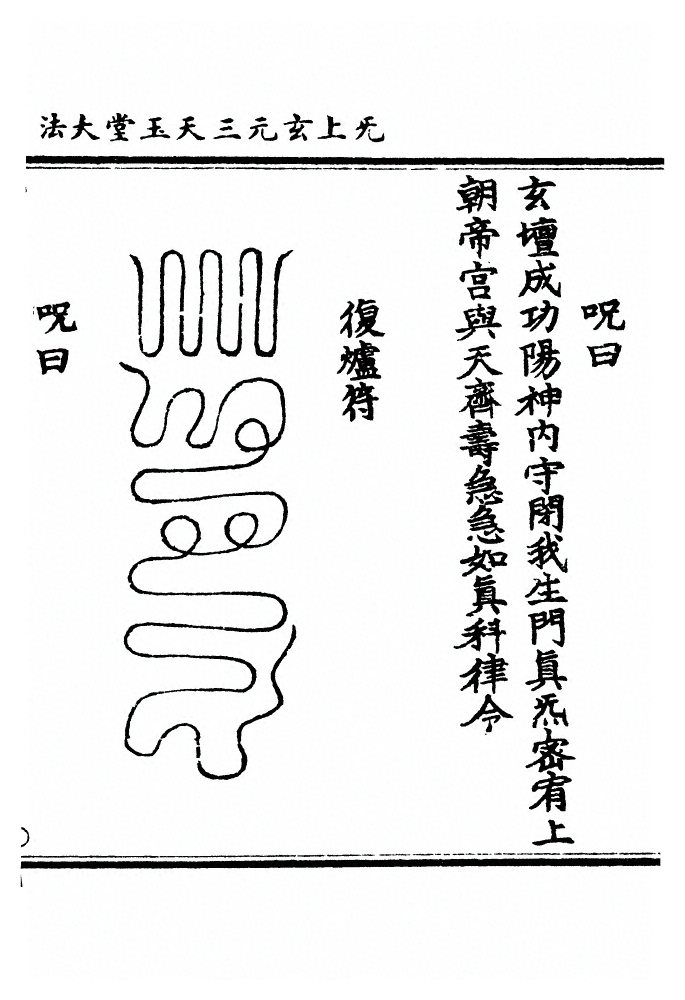 法大堂玉天三元玄上旡
呪曰
玄壇成功陽神內守閉我生門眞炁密宥上
朝帝宮與天齊壽急急如眞科律令
復爐符
呪曰